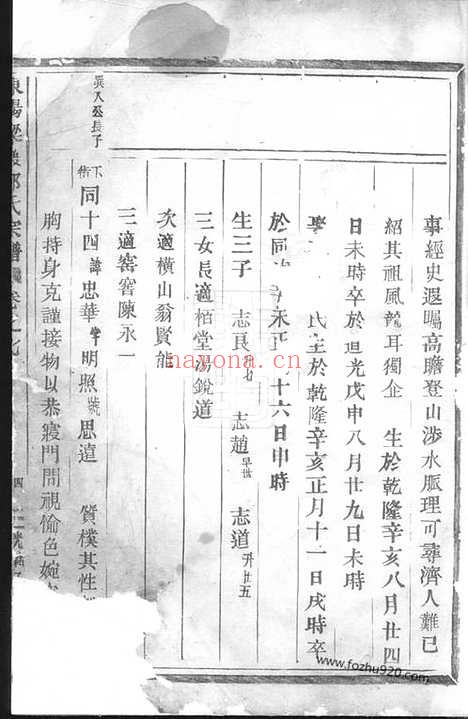 事經史遐矚高瞻登山涉水脈理可尋濟人難已
紹其祖風龍耳獨企 生於乾隆辛亥八月廿四
日未時卒於道光戊申八月廿九日未時
氏生於乾隆辛亥正月十一日戌時卒
於同 十六日申時
生三子 志良 志趙早世 志道升廿五
三女長適栢堂湯銳道
次適橫山翁賢能
三適窑窖陳永一
巽人公長子
下街 同十四諱忠華字明照號思遠 質樸其性
胸持身克謹接物以恭寢門問視愉色婉
氏宗譜
hayona.cn
www.fozhu920.com